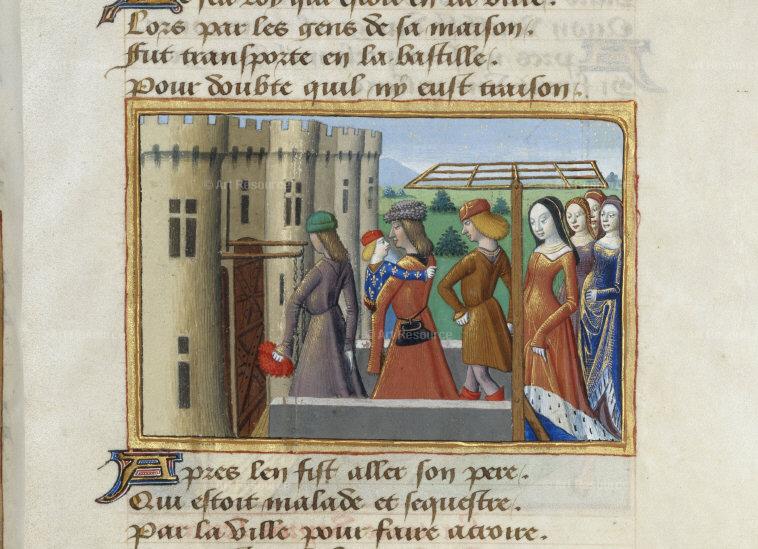 Lors par les gens de sa maison.
Fut transporte en la bastille.
Pour doubte quil ny eust traison.
© Art Resource
© Art Resource
Apres len fist aller son pere.
Qui estoit malade et sequestre.
Par la ville pour faire acroire.